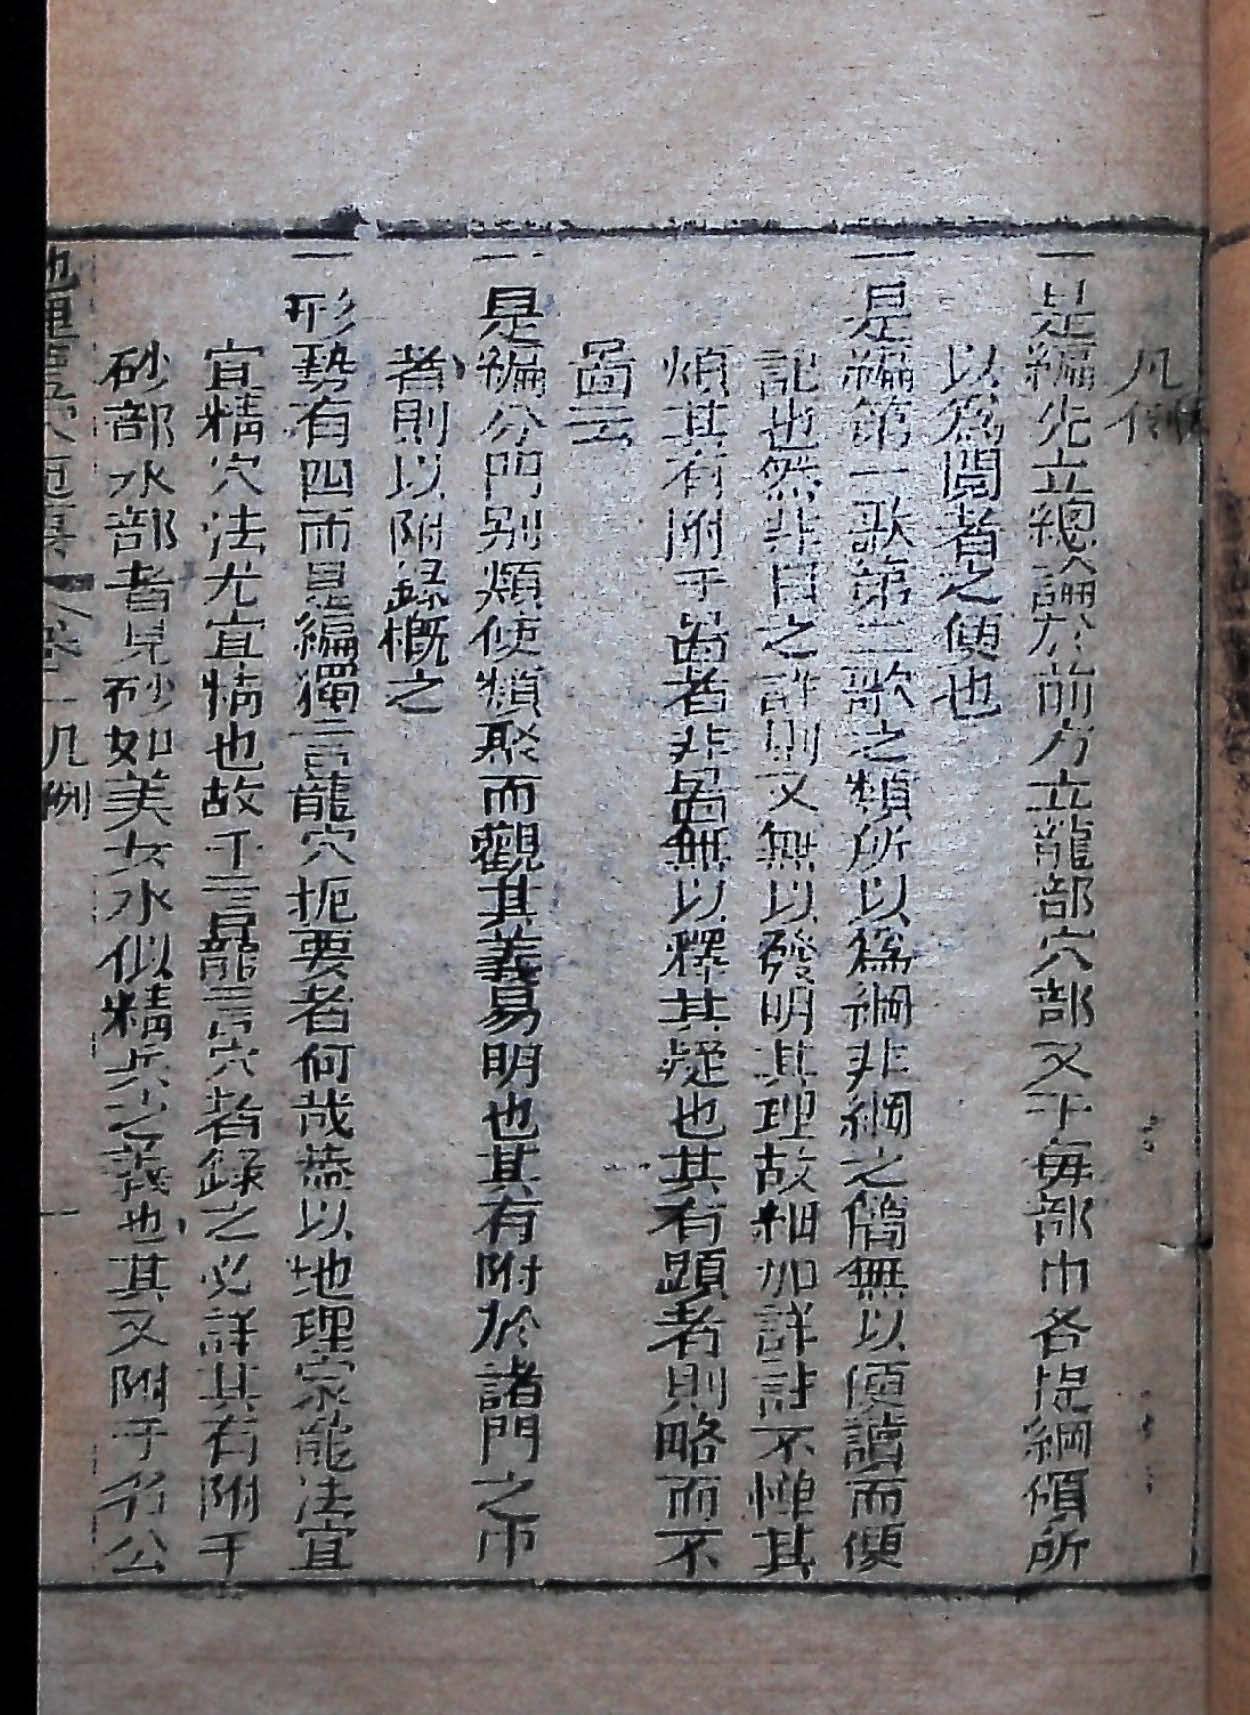 凡例
一是編先立總論於前方立龍部穴部又于每部中各提綱領所
以爲閲者之便也
一是編第一歌第二歌之類所以爲綱非綱之簡無以便讀而便
記也然非目之詳則又無以發明其理故細加詳註不憚其
煩其有附于啚者非啚無以釋其疑也其有顕者則略而不
啚云
一是編分門别類使類聚而觀其義易明也其有附於諸門之中
者則以附録概之
一形勢有四而是編獨言龍穴扼要者何哉葢以地理家龍法宜
宜精穴法尤宜情也故于言龍言穴者録之必詳其有附于
砂部水部者見砂如美女水似精兵之義也其又附于名公
凡例